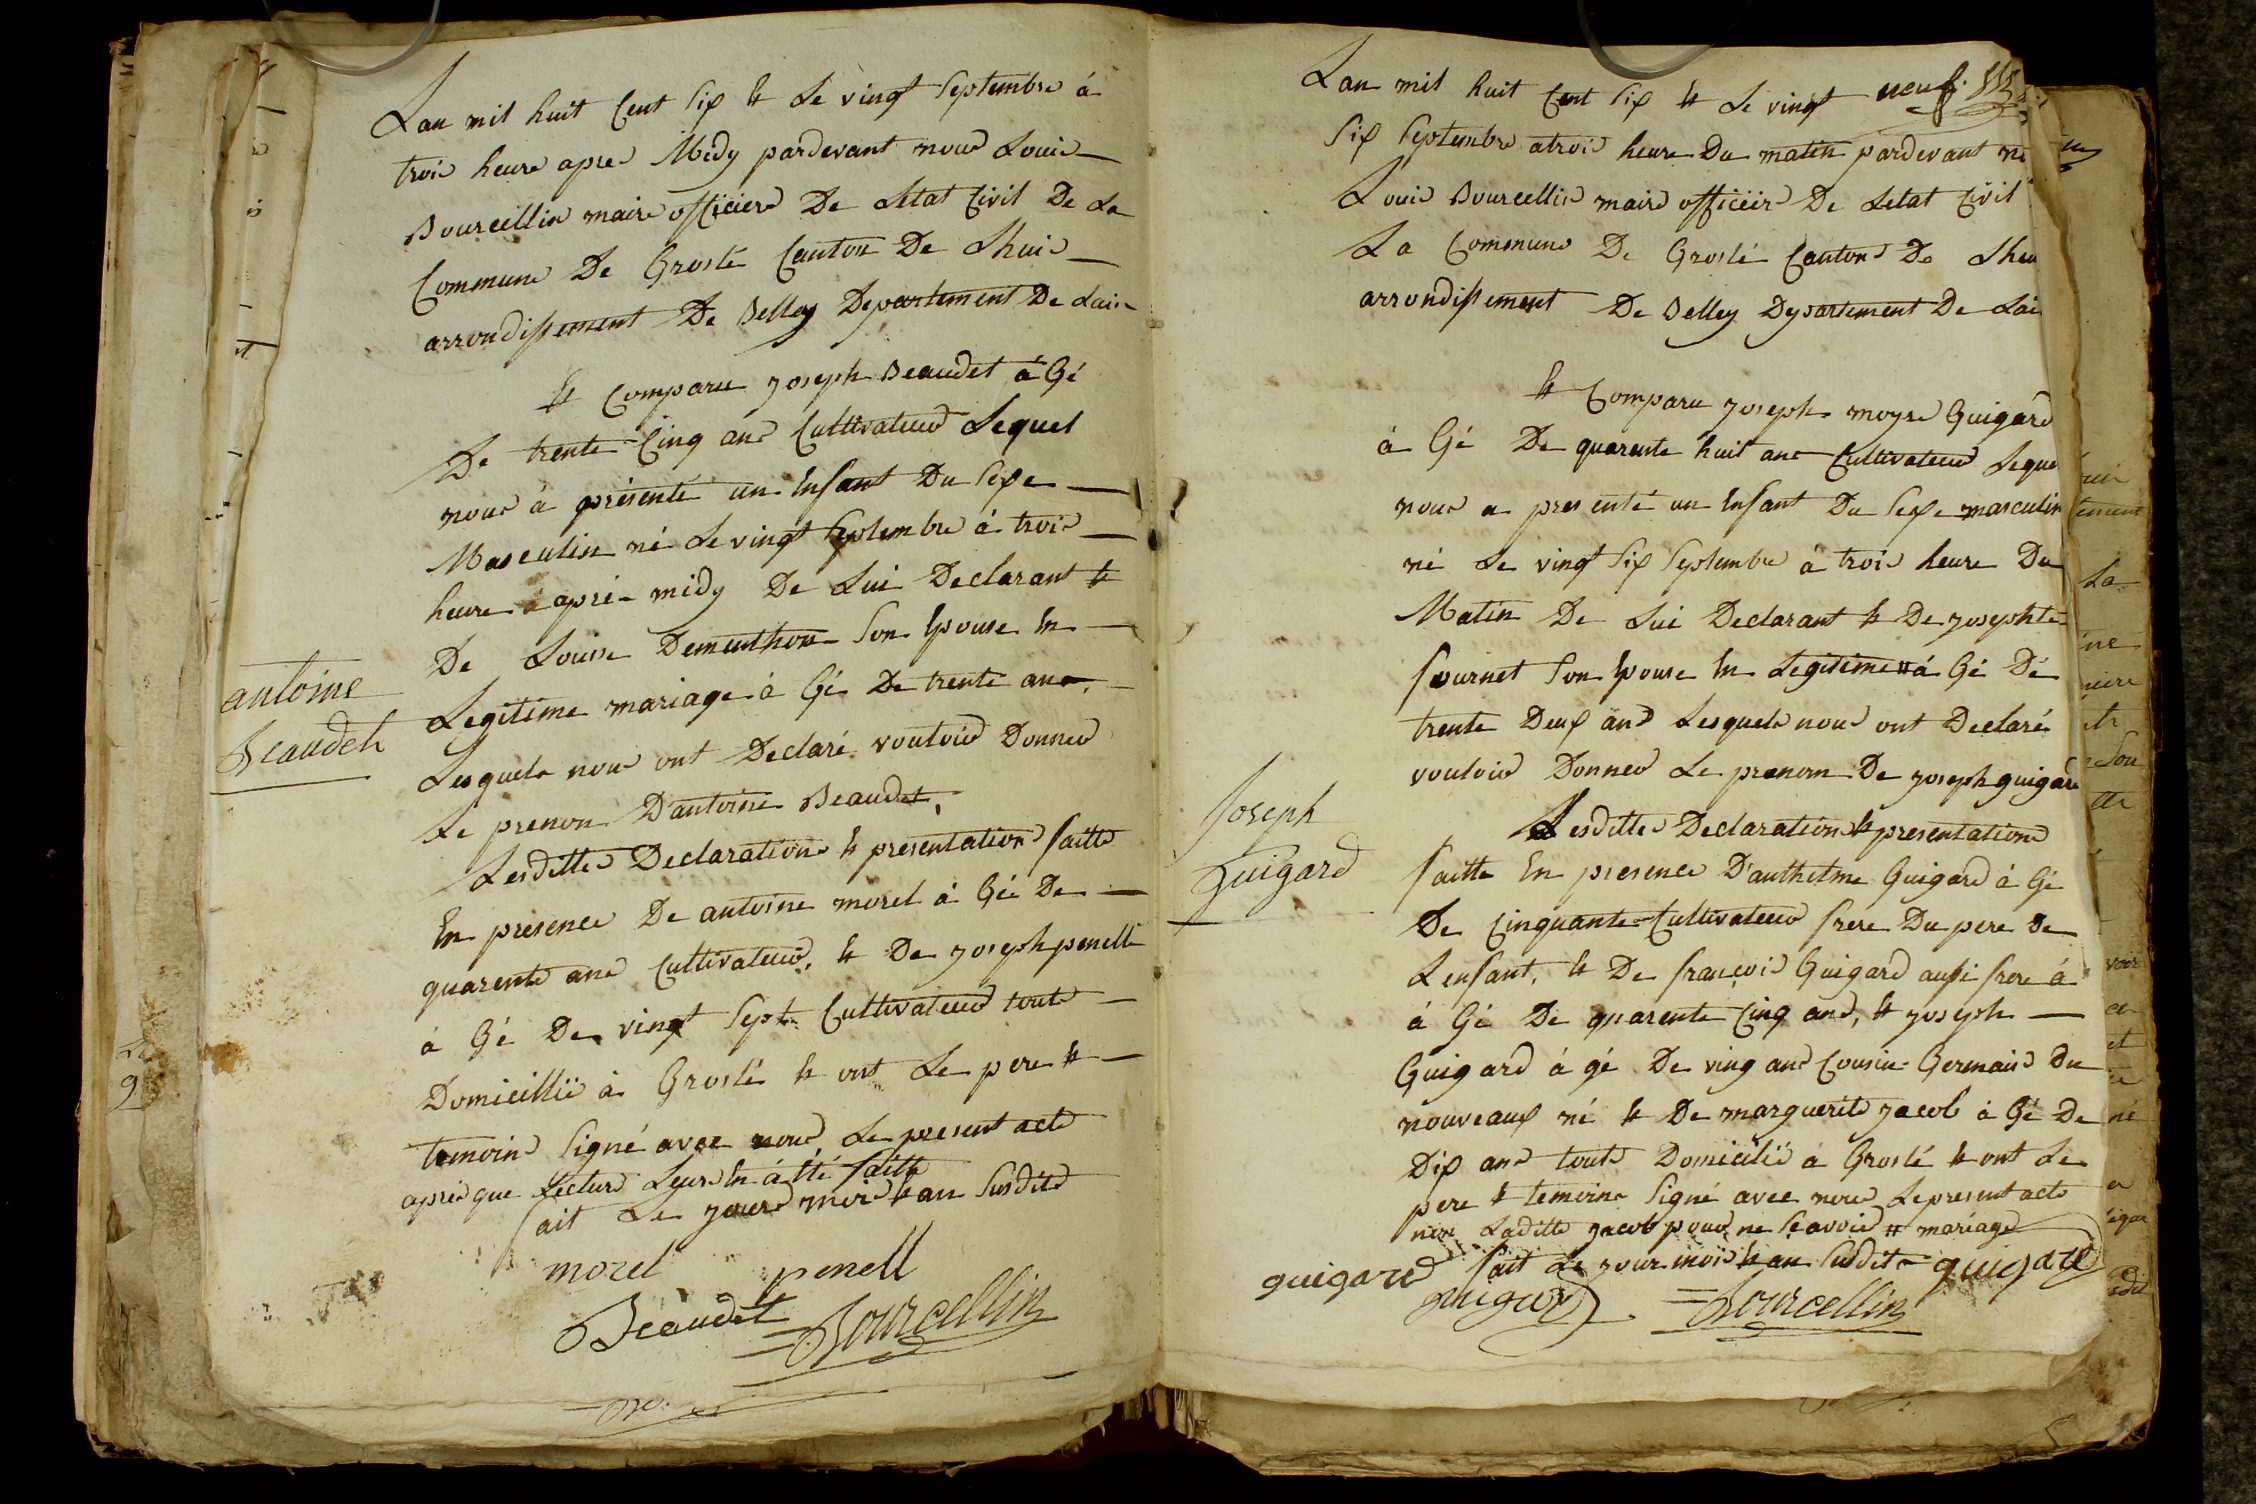 Lan mil huit Cent Six et Le vingt Septembre á
trois heure apres Midy pardevant nous Louis
Bourcellin maire officiere De Létat Civil De La
Commune De Groslé Canton De Lhuis
arrondissement De Belley Departement De Lain
Et Comparu joseph Beaudet á Gé
De trente Cinq ans Cultivateur Lequel
nous á présenté un Enfant Du Sexe
Masculin né Le vingt Septembre á trois
heure apré midy De Lui Declarant et
De Louise Demeuthon Son Epouse En
Legitime mariage á Gé De trente ans.
Lesquels nous ont Declaré vouloir Donner
Le prenon D'antoine Beaudet,
antoine
Beaudet
Lesdittes Declaration et presentation faitte
En presence De antoine morel á Gé De
quarente ans Cultivateur, et De joseph penelle
á Gé De vingt Sept Cultivateur touts
Domicillié á Groslé et ont Le pere et
temoins Signé avec nous Le present acte
aprés que Lecture Leurs En á été faitte
fait Le jours mois et an Susdits
morel penell
Beaudet Bourcellin
neuf
Lan mil huit Cent Six et Le vingt
Six Septembre atrois heure Du matin pardevant
Louis Bourcellin maire officieir De Letat Civil
La Commune De Groslé Canton De
arrondissement De Belley Departement De
Et Comparu joseph moyse Guigard
á Gé De quarente huit ans Cultivateur Leque
nous a presenté un Enfant Du Sexe masculin
né Le vingt Six Septembre á trois heure Du
Matin De Lui Declarant et De josephte
fournet Son Epouse En Legitime # á Gé De
trente Deux ans Lesquels nous ont Declaré
vouloir Donner Le prenom De joseph guigard
Joseph
Guigard
Lesdittes Declaration et presentations
faitte En presence D'anthelme Guigard á Gé
De Cinquante Cultivateur frere Du pere De
Lenfant, et De françois Guigard aussi frere á
á Gé De quarente Cinq ans, et joseph
Guigard á gé De ving ans Cousin Germain Du
nouveaux né et De marguerite jacob á Gé De
Dix ans touts Domicilié á Groslé et ont Le
pere et temoins Signé avec nous Lepresent acte
non Laditte jacob pour ne Scavoir # mariage
fait Le jour mois et an Susdits
guigard guigard
guigard Bourcellin